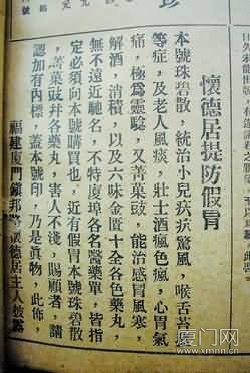 懷德居提防假冒
本號珠碧散，統治小兒疾疳驚風，喉舌苦廉
等症，及老人風痰，壯士酒瘋色瘋，心胃氣
痛，極為靈騐，又菁菓豉，能治感冒風寒，
解酒，消積，以及六味金匱十全各色藥丸，
無不遠近馳名，不特廈埠各名醫藥單，皆指
定必須向本號購買也，近有假冒本號珠碧散
，菁菓豉幷各藥丸，害人不淺，賜顧者，請
認加有內標，蓋本號印，乃是眞物，此佈，
福建廈門鎮邦路懷德居主人披露
厦门网
www.xmnn.cn